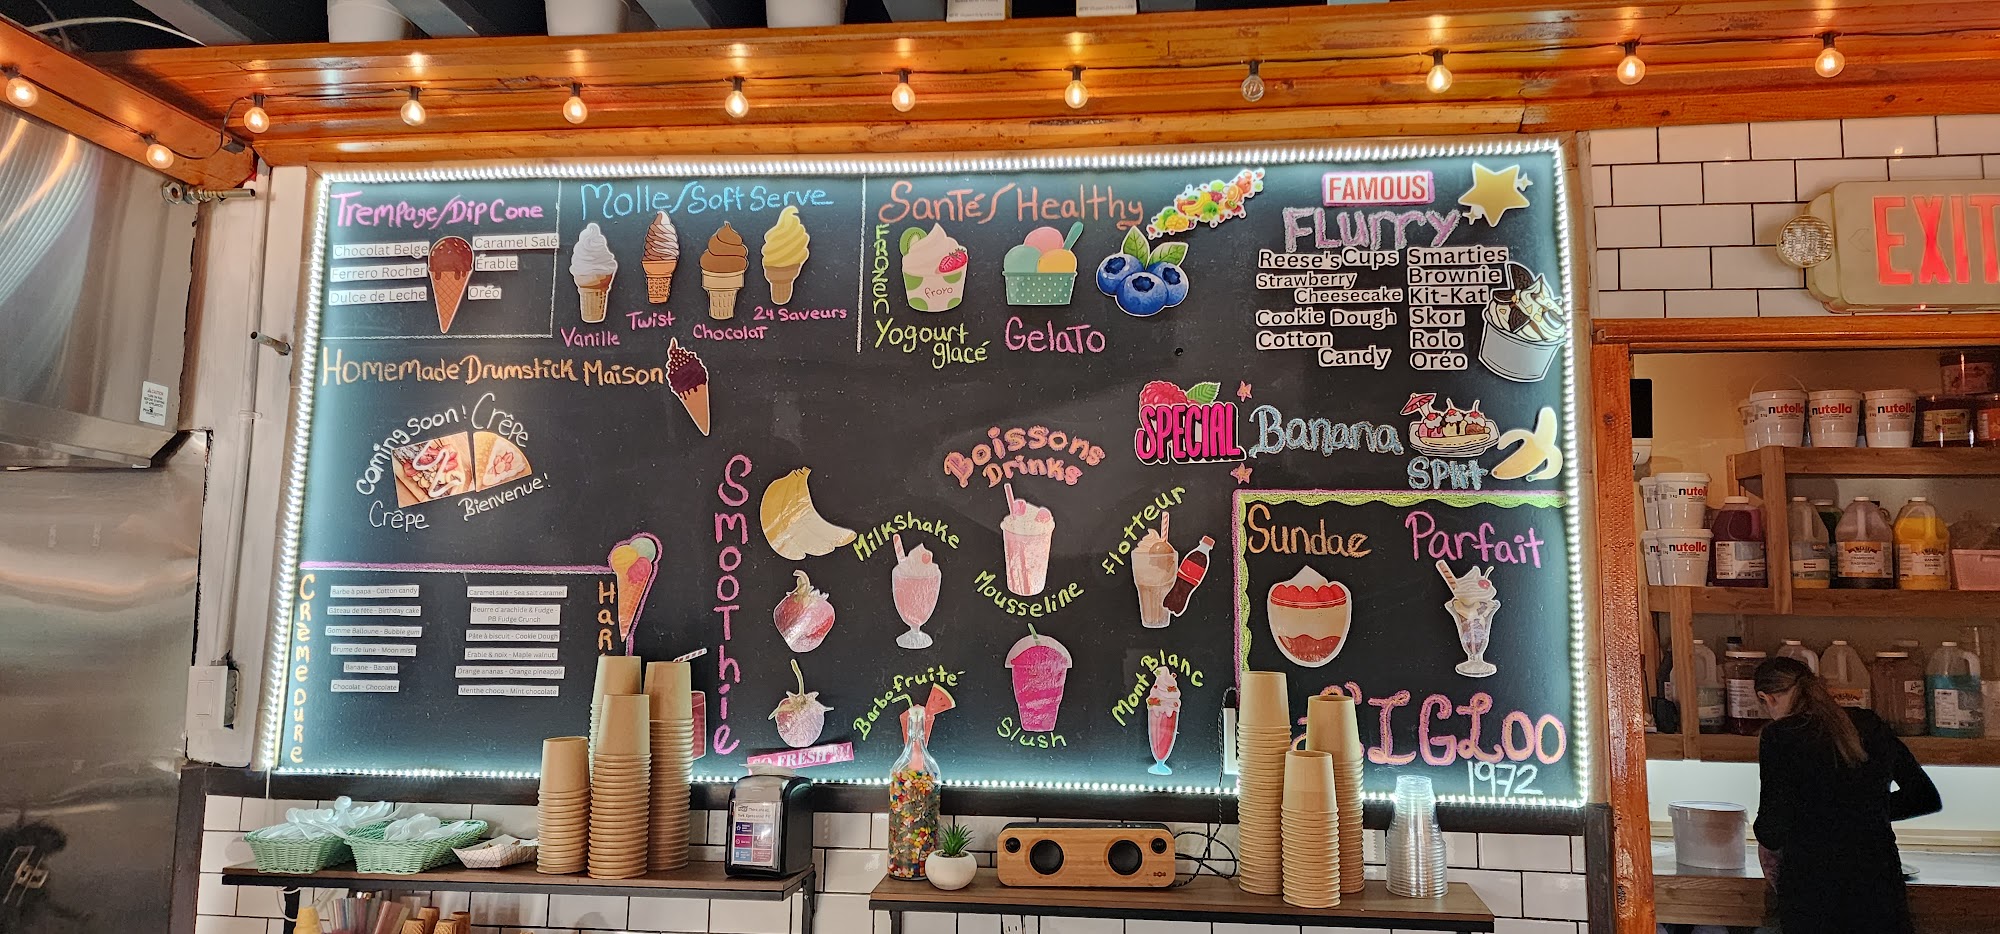 Trempage/Dip Cone
Chocolat Belge
Ferrero Rocher
Dulce de Leche
Caramel Salé
Érable
Oréo
Molle/Soft Serve
Vanille
Twist
Chocolat
24 Saveurs
Santé/Healthy
FROZEN
froyo
Yogourt
glacé
Gelato
FAMOUS
Flurry
Reese's Cups
Strawberry
Cheesecake
Cookie Dough
Cotton
Candy
Smarties
Brownie
Kit-Kat
Skor
Rolo
Oréo
Homemade Drumstick Maison
Coming Soon!
Crêpe
Crêpe
Bienvenue!
SPECIAL
Banana
Split
Boissons
Drinks
Smoothie
Milkshake
Mousseline
Flotteur
Barbofruite
Slush
Mont Blanc
SO FRESH
Sundae
Parfait
CrèmeDure
Barbe à papa - Cotton candy
Gâteau de fête - Birthday cake
Gomme Balloune - Bubble gum
Brume de lune - Moon mist
Banane - Banana
Chocolat - Chocolate
Caramel salé - Sea salt caramel
Beurre d'arachide & Fudge -
PB Fudge Crunch
Pâte à biscuit - Cookie Dough
Érable & noix - Maple walnut
Orange ananas - Orange pineapple
Menthe choco - Mint chocolate
Har
IGLOO
1972
EXIT
nutella
nutella
nutella
nutella
nutella